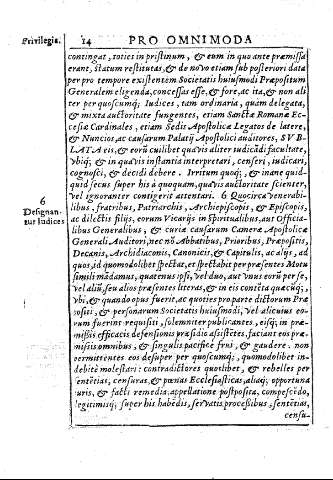 Privilegia.
14
PRO OMNIMODA
contingat, toties in pristinum, & eum in quo ante præmissa
erant, statum restitutas, & de novo etiam sub posteriori data
per pro tempore existentem Societatis huiusmodi Præpositum
Generalem eligenda, concessas esse, & fore, ac ita, & non ali
ter per quoscumq; Iudices, tam ordinaria, quàm delegata,
& mixta auctoritate fungentes, etiam Sanctæ Romanæ Ec-
cesiæ Cardinales, etiam Sedis Apostolicæ Legatos de latere,
& Nuncios, ac causarum Palatij Apostolici auditores, SVB-
LATA eis, & eorũ cuilibet quavis aliter iudicãdi facultate,
vbiq; & in quavis instantia interpretari, censeri, iudicari,
cognosci, & decidi debere. Irritum quoq; & inane quid-
quid secus super his à quoquam, quavis auctoritate scienter,
vel ignoranter contigerit attentari. 6 Quocirca venerabi-
libus, fratribus, Patriarchis, Archiepiscopis, & Episcopis,
ac dilectis filijs, eorum Vicarijs in Spiritualibus, aut Officia-
libus Generalibus, & curiæ causarum Cameræ Apostolicæ
Generali, Auditori, nec nõ Abbatibus, Prioribus, Præpositis,
Decanis, Archidiaconis, Canonicis, & Capitulis, ac alijs, ad
quos, id quomodolibet spectat, & spectabit per præsentes Motu
simili mãdamus, quatenus ipsi, vel duo, aut vnus eorũ per se,
vel aliũ, seu alios præsentes literas, & in eis contẽta quæcũq;,
vbi, & quando opus fuerit, ac quoties pro parte dictorum Præ
positi, & personarum Societatis huiusmodi, vel alicuius eo-
rum fuerint requisiti, solemniter publicantes, eisq; in præ-
missis efficacis defensionis præsidio assistẽtes, faciant eos præ
missis omnibus, & singulis pacifice frui, & gaudere. non
permittentes eos desuper per quoscumq; quomodolibet in-
debitè molestari: contradictores quoslibet, & rebelles per
sentẽtias, censuras, & pœnas Ecclesiasticas, aliaq; opportuna
iuris, & facti remedia: appellatione postposita, compescẽdo,
legitimisq; super his habẽdis, servatis processibus, sentẽtias,
censu-
6
Designan-
tur Iudices